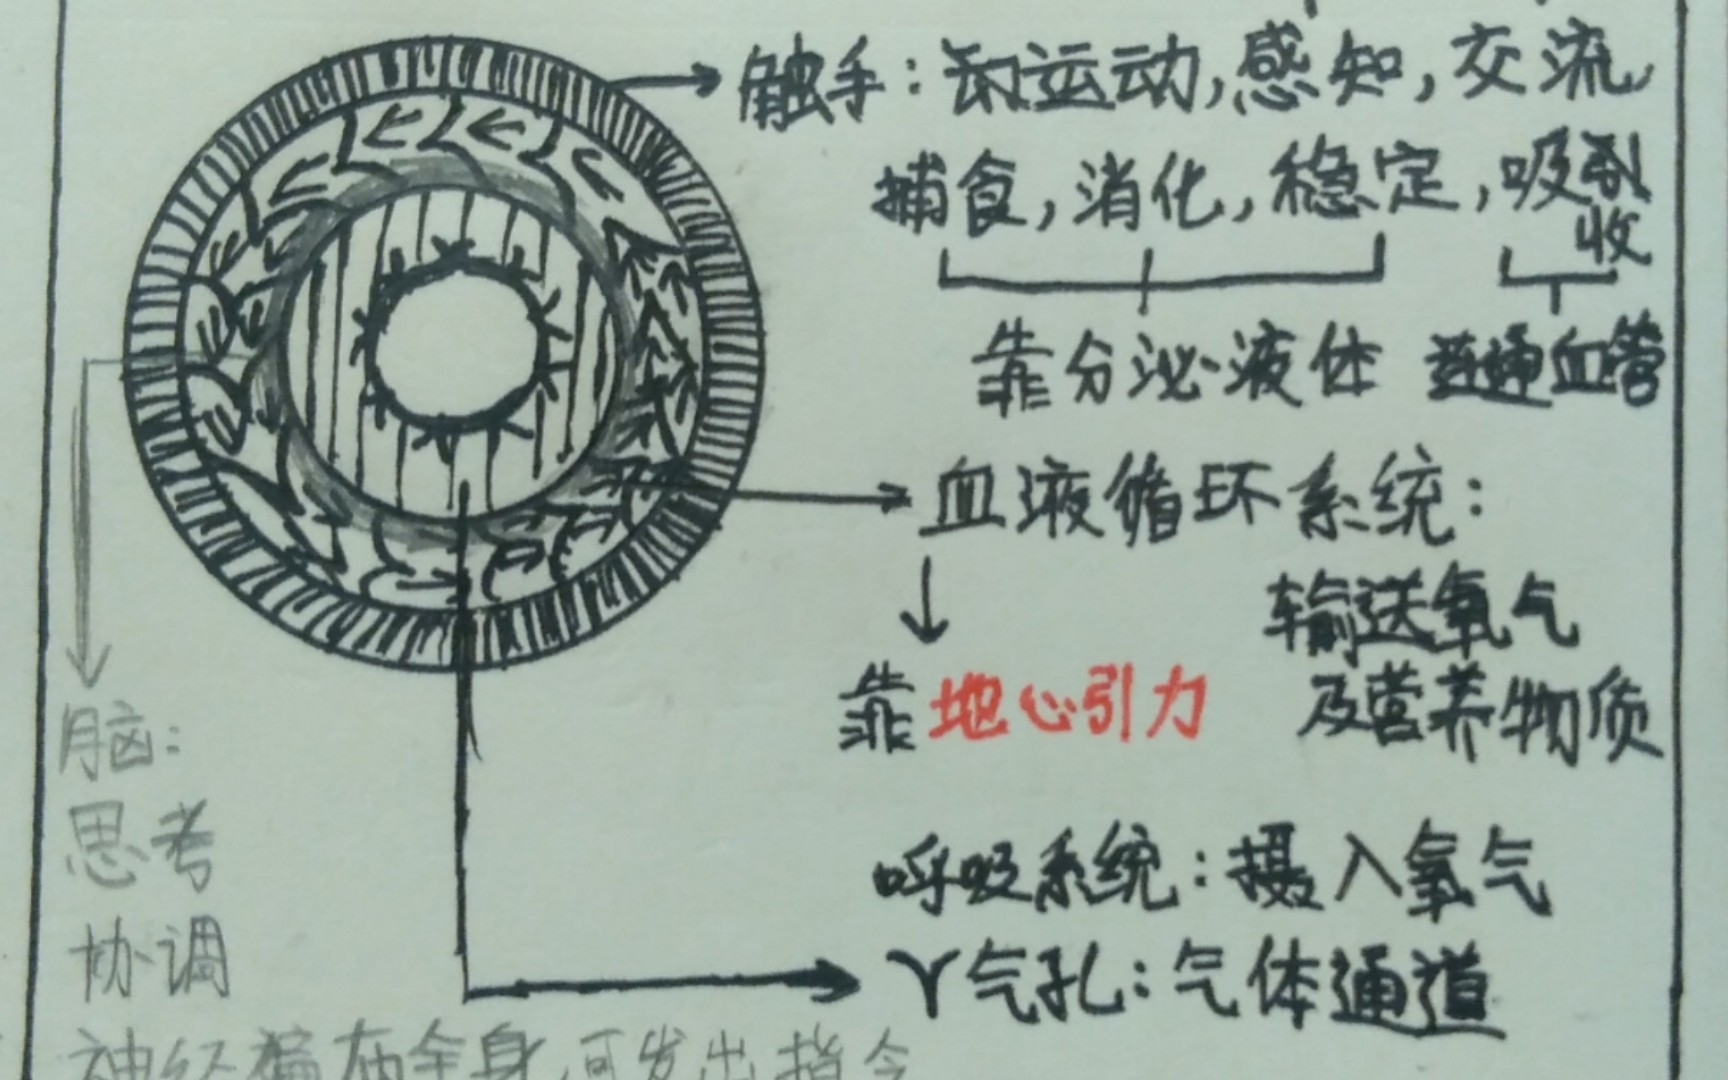 触手：运动，感知，交流，
捕食，消化，稳定，吸
收
靠分泌液体 连通血管
血液循环系统：
输送氧气
靠地心引力 及营养物质
脑：
思考
协调
呼吸系统：摄入氧气
Y气孔：气体通道
神经遍布全身，可发出指令